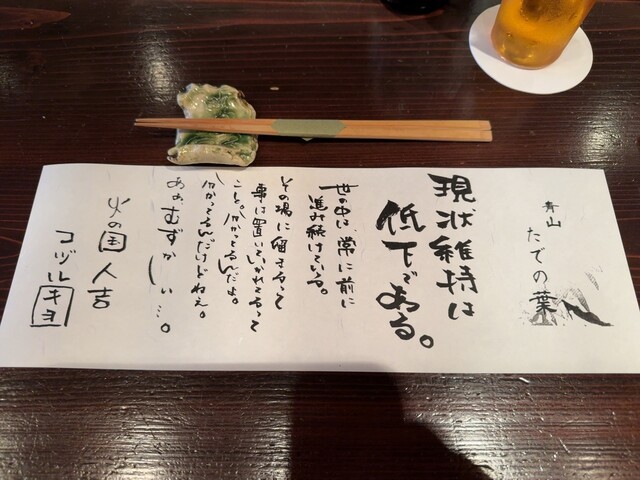 青山
たでの葉
現状維持は
低下である。
世の中は、常に前に
進み続けている。
その場に留まるって
事は置いていかれてるって
こと。分かってるんだよ。
分かってるんだけどねぇ。
あぁ、むずかしい…。
火の国 人吉
コヅル キヨ